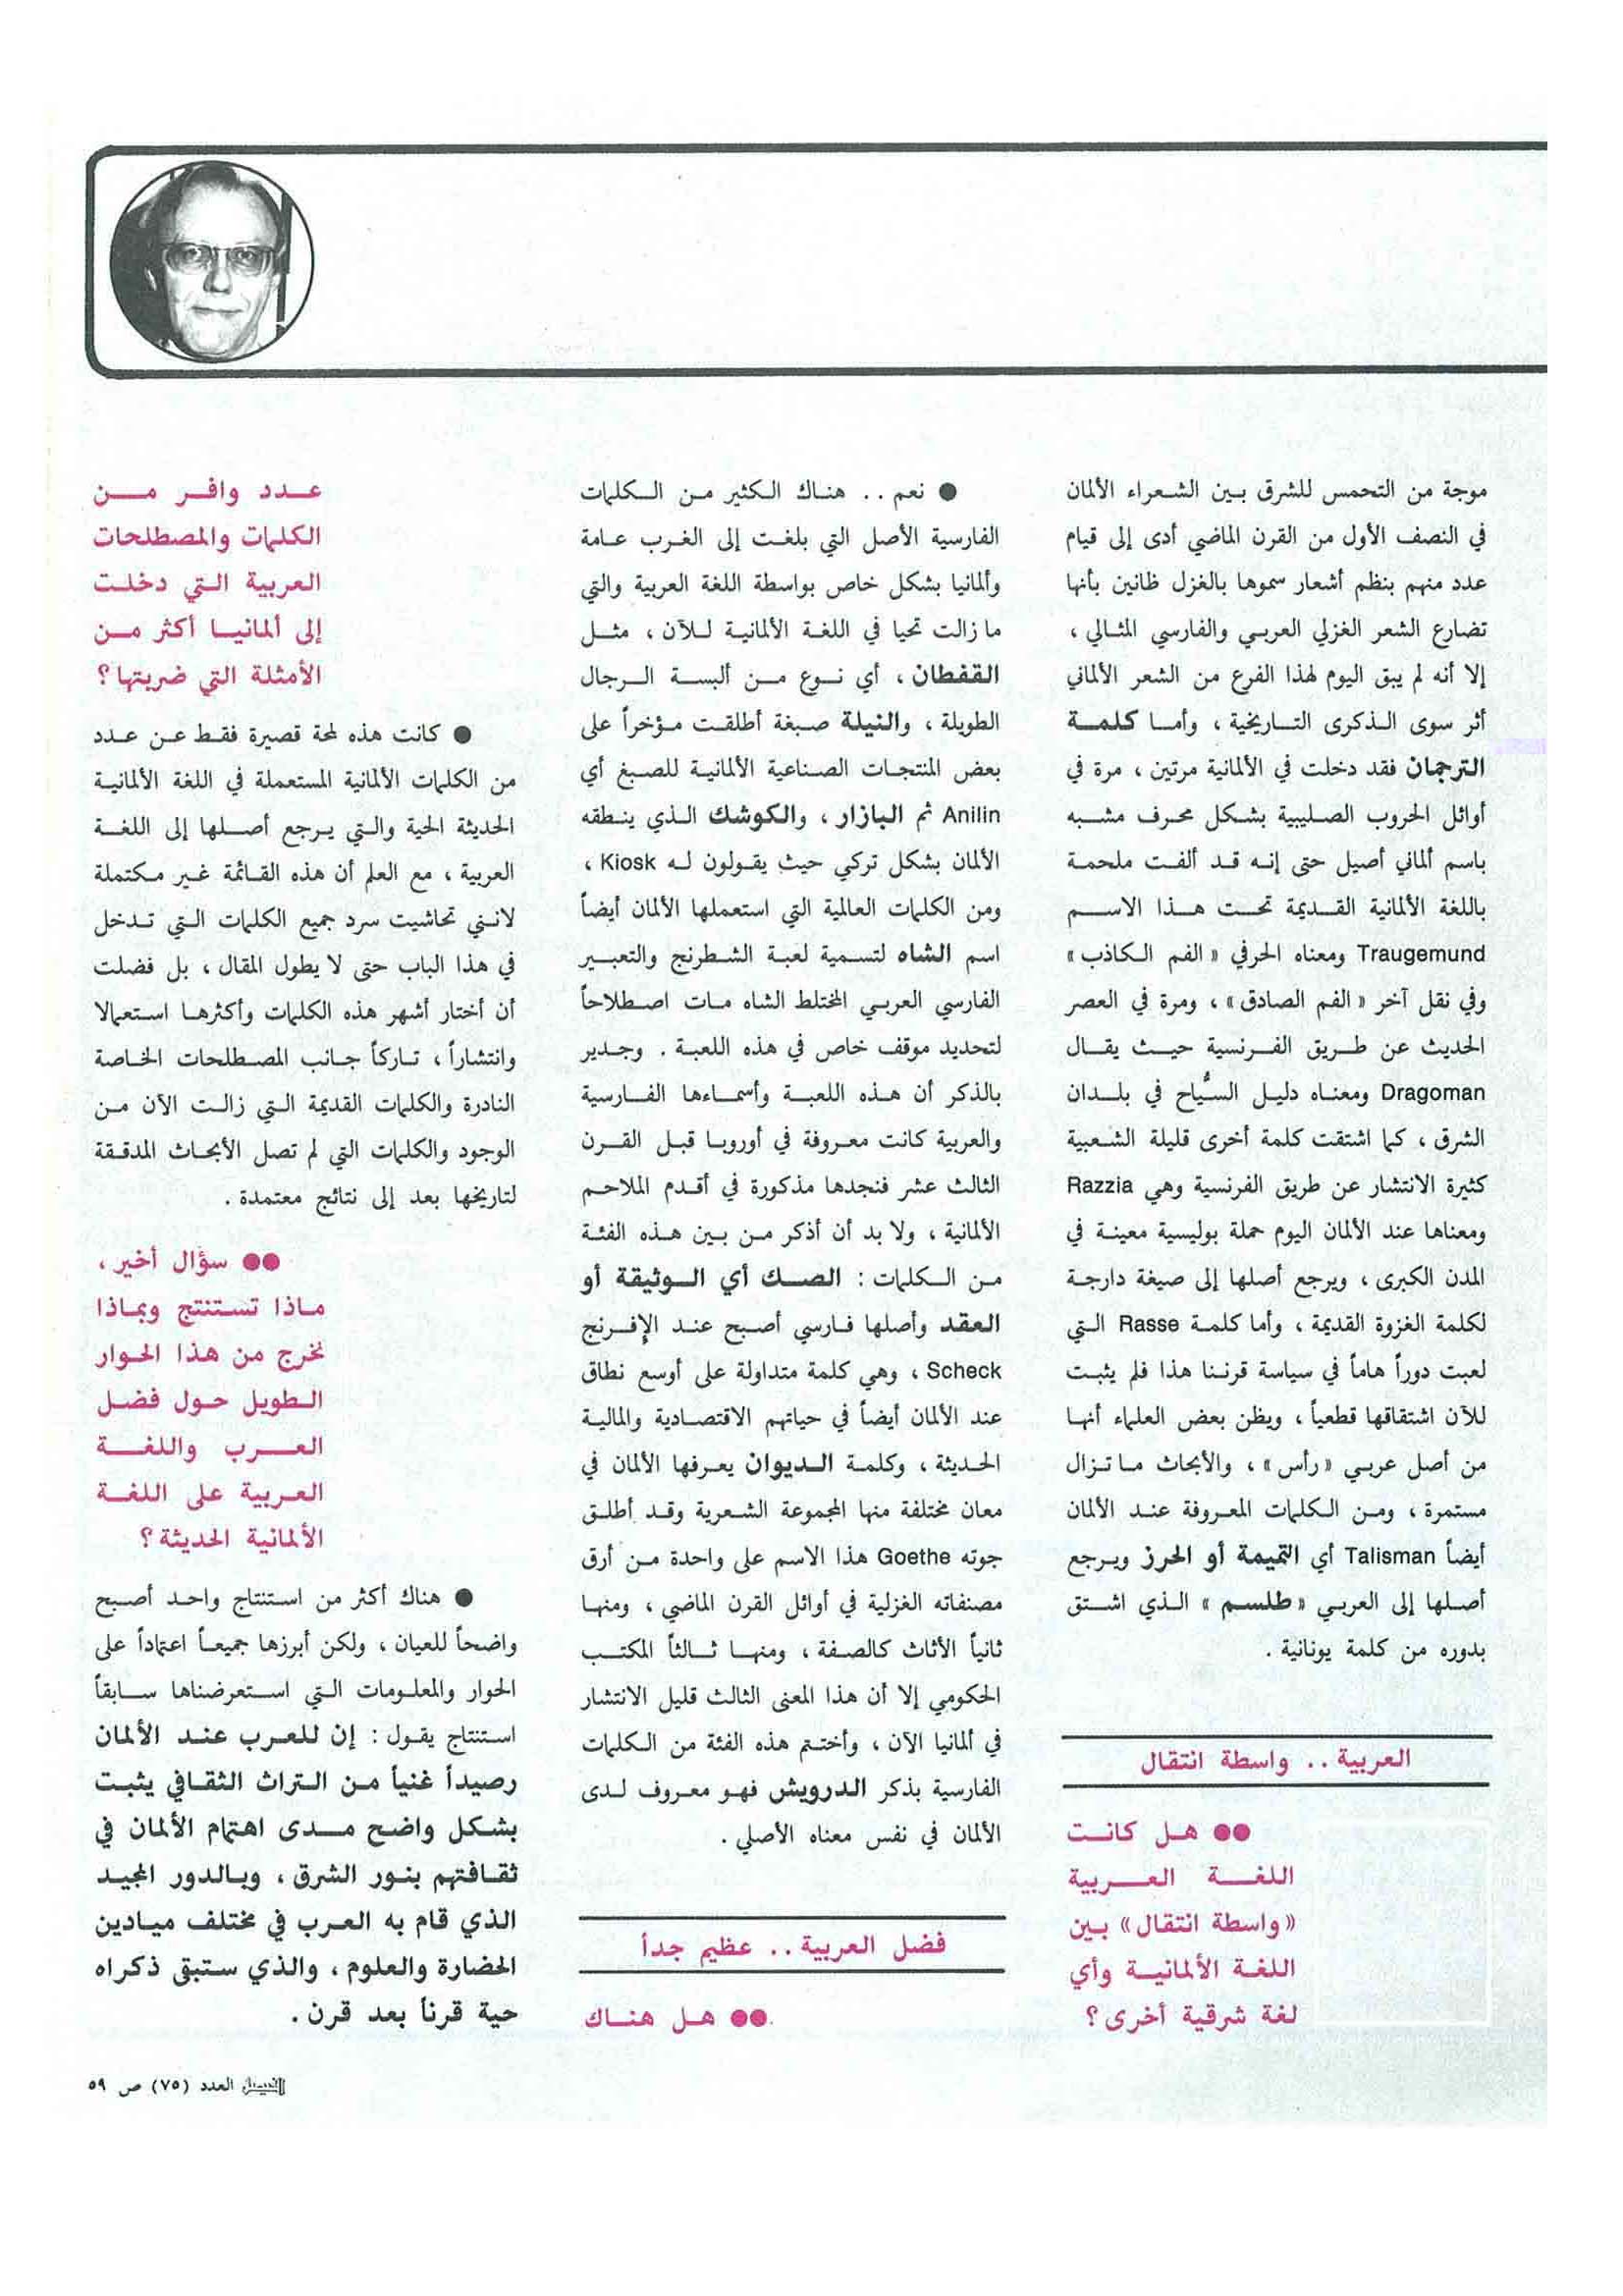 موجة من التحمس للشرق بين الشعراء الألمان
في النصف الأول من القرن الماضي أدى إلى قيام
عدد منهم بنظم أشعار سموها بالغزل ظانين بأنها
تضارع الشعر الغزلي العربي والفارسي المثالي ،
إلا أنه لم يبق اليوم لهذا الفرع من الشعر الألماني
أثر سوى الذكرى التاريخية ، وأما كلمة
الترجمان فقد دخلت في الألمانية مرتين ، مرة في
أوائل الحروب الصليبية بشكل محرف مشبه
باسم ألماني أصيل حتى إنه قد ألفت ملحمة
باللغة الألمانية القديمة تحت هذا الاسم
Traugemund ومعناه الحرفي « الفم الكاذب »
وفي نقل آخر « الفم الصادق » ، ومرة في العصر
الحديث عن طريق الفرنسية حيث يقال
Dragoman ومعناه دليل السُّياح في بلدان
الشرق ، كما اشتقت كلمة أخرى قليلة الشعبية
كثيرة الانتشار عن طريق الفرنسية وهي Razzia
ومعناها عند الألمان اليوم حملة بوليسية معينة في
المدن الكبرى ، ويرجع أصلها إلى صيغة دارجة
لكلمة الغزوة القديمة ، وأما كلمة Rasse التي
لعبت دوراً هاماً في سياسة قرننا هذا فلم يثبت
للآن اشتقاقها قطعياً ، ويظن بعض العلماء أنها
من أصل عربي « رأس » ، والأبحاث ما تزال
مستمرة ، ومن الكلمات المعروفة عند الألمان
أيضاً Talisman أي التميمة أو الحرز ويرجع
أصلها إلى العربي « طلسم » الذي اشتق
بدوره من كلمة يونانية .
العربية .. واسطة انتقال
●● هل كانت
اللغة العربية
«واسطة انتقال» بين
اللغة الألمانية وأي
لغة شرقية أخرى ؟
● نعم .. هناك الكثير من الكلمات
الفارسية الأصل التي بلغت إلى الغرب عامة
وألمانيا بشكل خاص بواسطة اللغة العربية والتي
ما زالت تحيا في اللغة الألمانية للآن ، مثل
القفطان ، أي نوع من ألبسة الرجال
الطويلة ، والنيلة صبغة أطلقت مؤخراً على
بعض المنتجات الصناعية الألمانية للصبغ أي
Anilin ثم البازار ، والكوشك الذي ينطقه
الألمان بشكل تركي حيث يقولون له Kiosk ،
ومن الكلمات العالمية التي استعملها الألمان أيضاً
اسم الشاه لتسمية لعبة الشطرنج والتعبير
الفارسي العربي المختلط الشاه مات اصطلاحاً
لتحديد موقف خاص في هذه اللعبة . وجدير
بالذكر أن هذه اللعبة وأسماءها الفارسية
والعربية كانت معروفة في أوروبا قبل القرن
الثالث عشر فنجدها مذكورة في أقدم الملاحم
الألمانية ، ولا بد أن أذكر من بين هذه الفئة
من الكلمات : الصك أي الوثيقة أو
العقد وأصلها فارسي أصبح عند الإفرنج
Scheck ، وهي كلمة متداولة على أوسع نطاق
عند الألمان أيضاً في حياتهم الاقتصادية والمالية
الحديثة ، وكلمة الديوان يعرفها الألمان في
معان مختلفة منها المجموعة الشعرية وقد أطلق
جوته Goethe هذا الاسم على واحدة من أرق
مصنفاته الغزلية في أوائل القرن الماضي ، ومنها
ثانياً الأثاث كالصفة ، ومنها ثالثاً المكتب
الحكومي إلا أن هذا المعنى الثالث قليل الانتشار
في ألمانيا الآن ، وأختتم هذه الفئة من الكلمات
الفارسية بذكر الدرويش فهو معروف لدى
الألمان في نفس معناه الأصلي .
فضل العربية .. عظيم جداً
●● هل هناك
عدد وافر من
الكلمات والمصطلحات
العربية التي دخلت
إلى ألمانيا أكثر من
الأمثلة التي ضربتها ؟
● كانت هذه لمحة قصيرة فقط عن عدد
من الكلمات الألمانية المستعملة في اللغة الألمانية
الحديثة الحية والتي يرجع أصلها إلى اللغة
العربية ، مع العلم أن هذه القائمة غير مكتملة
لانني تحاشيت سرد جميع الكلمات التي تدخل
في هذا الباب حتى لا يطول المقال ، بل فضلت
أن أختار أشهر هذه الكلمات وأكثرها استعمالا
وانتشاراً ، تاركاً جانب المصطلحات الخاصة
النادرة والكلمات القديمة التي زالت الآن من
الوجود والكلمات التي لم تصل الأبحاث المدققة
لتاريخها بعد إلى نتائج معتمدة .
●● سؤال أخير ،
ماذا تستنتج وبماذا
نخرج من هذا الحوار
الطويل حول فضل
العرب واللغة
العربية على اللغة
الألمانية الحديثة ؟
● هناك أكثر من استنتاج واحد أصبح
واضحاً للعيان ، ولكن أبرزها جميعاً اعتماداً على
الحوار والمعلومات التي استعرضناها سابقاً
استنتاج يقول : إن للعرب عند الألمان
رصيداً غنياً من التراث الثقافي يثبت
بشكل واضح مدى اهتمام الألمان في
ثقافتهم بنور الشرق ، وبالدور المجيد
الذي قام به العرب في مختلف ميادين
الحضارة والعلوم ، والذي ستبقى ذكراه
حية قرناً بعد قرن .
الفيصل العدد (٧٥) ص ٥٩